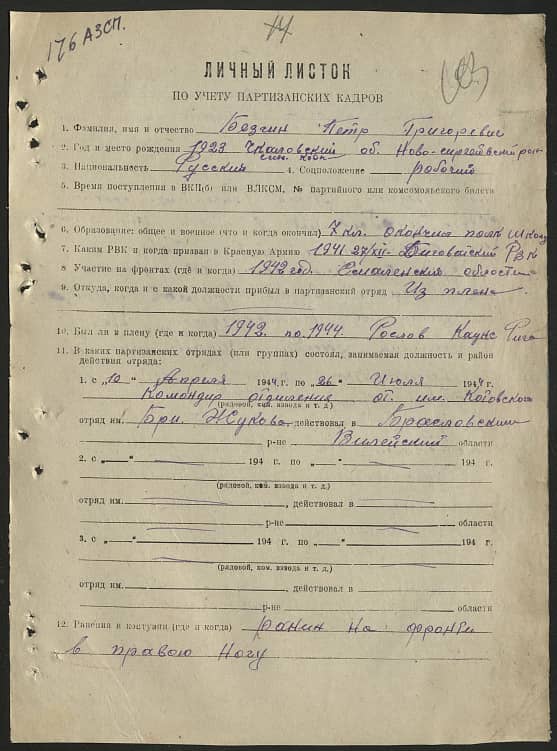 176 АЗСП.
ЛИЧНЫЙ ЛИСТОК
ПО УЧЕТУ ПАРТИЗАНСКИХ КАДРОВ
1. Фамилия, имя и отчество Безгин Петр Григоревич
2. Год и место рождения 1923 Чкаловский об. Ново-сергиевский
3. Национальность Русский 4. Соцположение рабочий
5. Время поступления в ВКП(б) или ВЛКСМ, № партийного или комсомольского билета
6. Образование: общее и военное (что и когда окончил) 7 кл. окончил полк школу
7. Каким РВК и когда призван в Красную Армию 1941 27/XII- РВК
8 Участие на фронтах (где и когда) 1942 год. Смаленский области
9. Откуда, когда и с какой должности прибыл в партизанский отряд Из плена.
10. Был ли в плену (где и когда) 1942 по 1944 Рослов Каунс Рига
11. В каких партизанских отрядах (или группах) состоял, занимаемая должность и район
действия отряда:
1. с „10" Апреля 1944 г. по „26" Июля 1944 г.
Командир отделения от. им. Котовского
(рядовой, ком. взвода и т. д.)
отряд им. Бри. Жукова действовал в Браславский
р-не Вилейский области
2. с „—" 194 г. по „—" 194 г.
(рядовой, ком. взвода и т. д.)
отряд им. , действовал в
р-не области
3. с „—" 194 г. по „—" 194 г.
(рядовой, ком. взвода и т. д.)
отряд им. , действовал в
р-не области
12. Ранения и контузии (где и когда) Ранин на фронте
в правою ногу